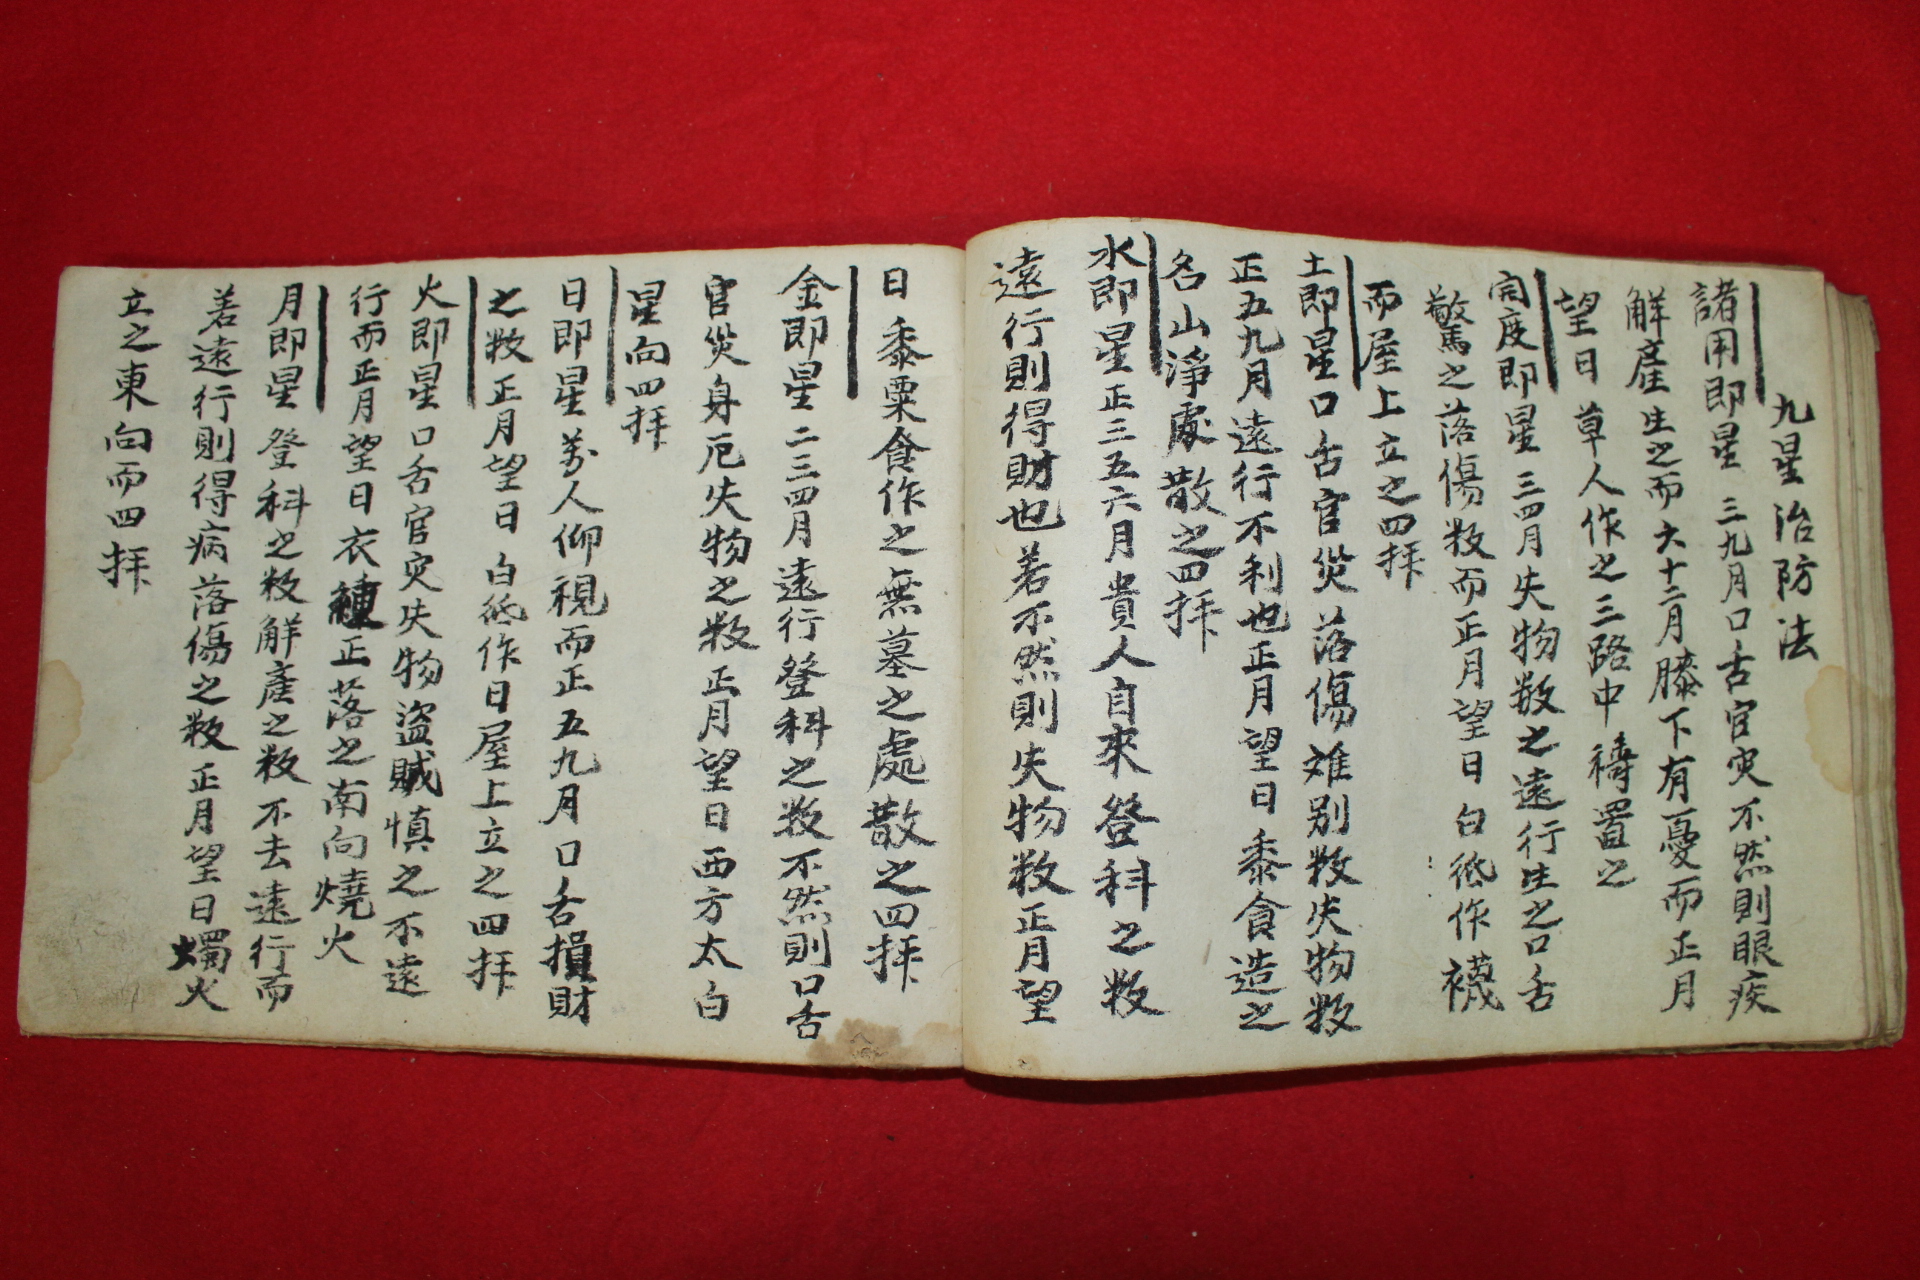 九星治防法
諸用即星 三九月口舌官灾不然則眼疾
解產生之而六十二月膝下有憂而正月
望日草人作之三路中 禱置之
即星三四月失物数之遠行生之口舌
驚之落傷数而正月望日白紙作襪
而屋上立之四拜
土即星口舌官災落傷难别数失物数
正五九月遠行不利也正月望日黍食造之
名山淨處散之四拜
水即星正三五六月貴人自來登科之数
遠行則得財也若不然則失物数正月望
日黍粟食作之無墓之處散之四拜
金即星二三四月遠行登科之数不然則口舌
官災身厄失物之数正月望日西方太白
星向四拜
日即星万人仰視而正五九月口舌損財
之数正月望日白紙作日屋上立之四拜
火即星口舌官灾失物盜賊慎之不遠
行而正月望日衣正落之南向燒火
月即星登科之数解產之数不去遠行而
若遠行則得病落傷之数正月望日燭火
立之東向而四拜